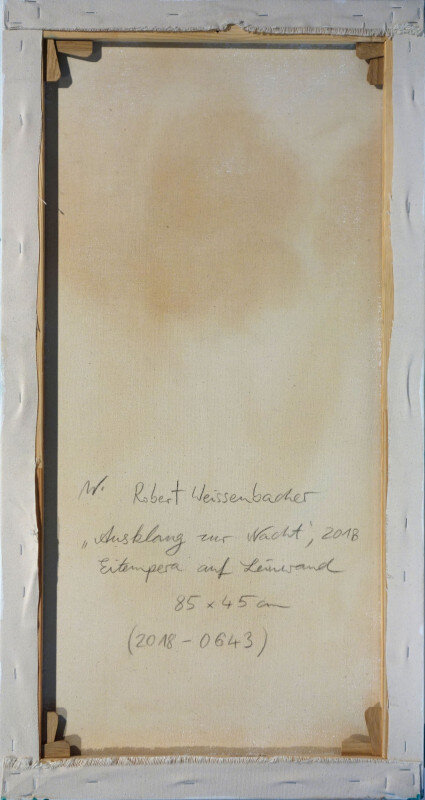 W. Robert Weissenbacher
„Ausklang zur Nacht', 2018
Eitempera auf Leinwand
85 x 45 cm
(2018 - 0643)